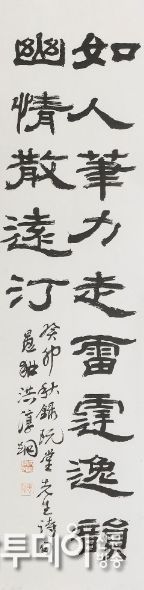 如人筆力走雷霆逸韻
幽情散遠汀
癸卯秋錄阮堂先生詩句
洪淳
투데이